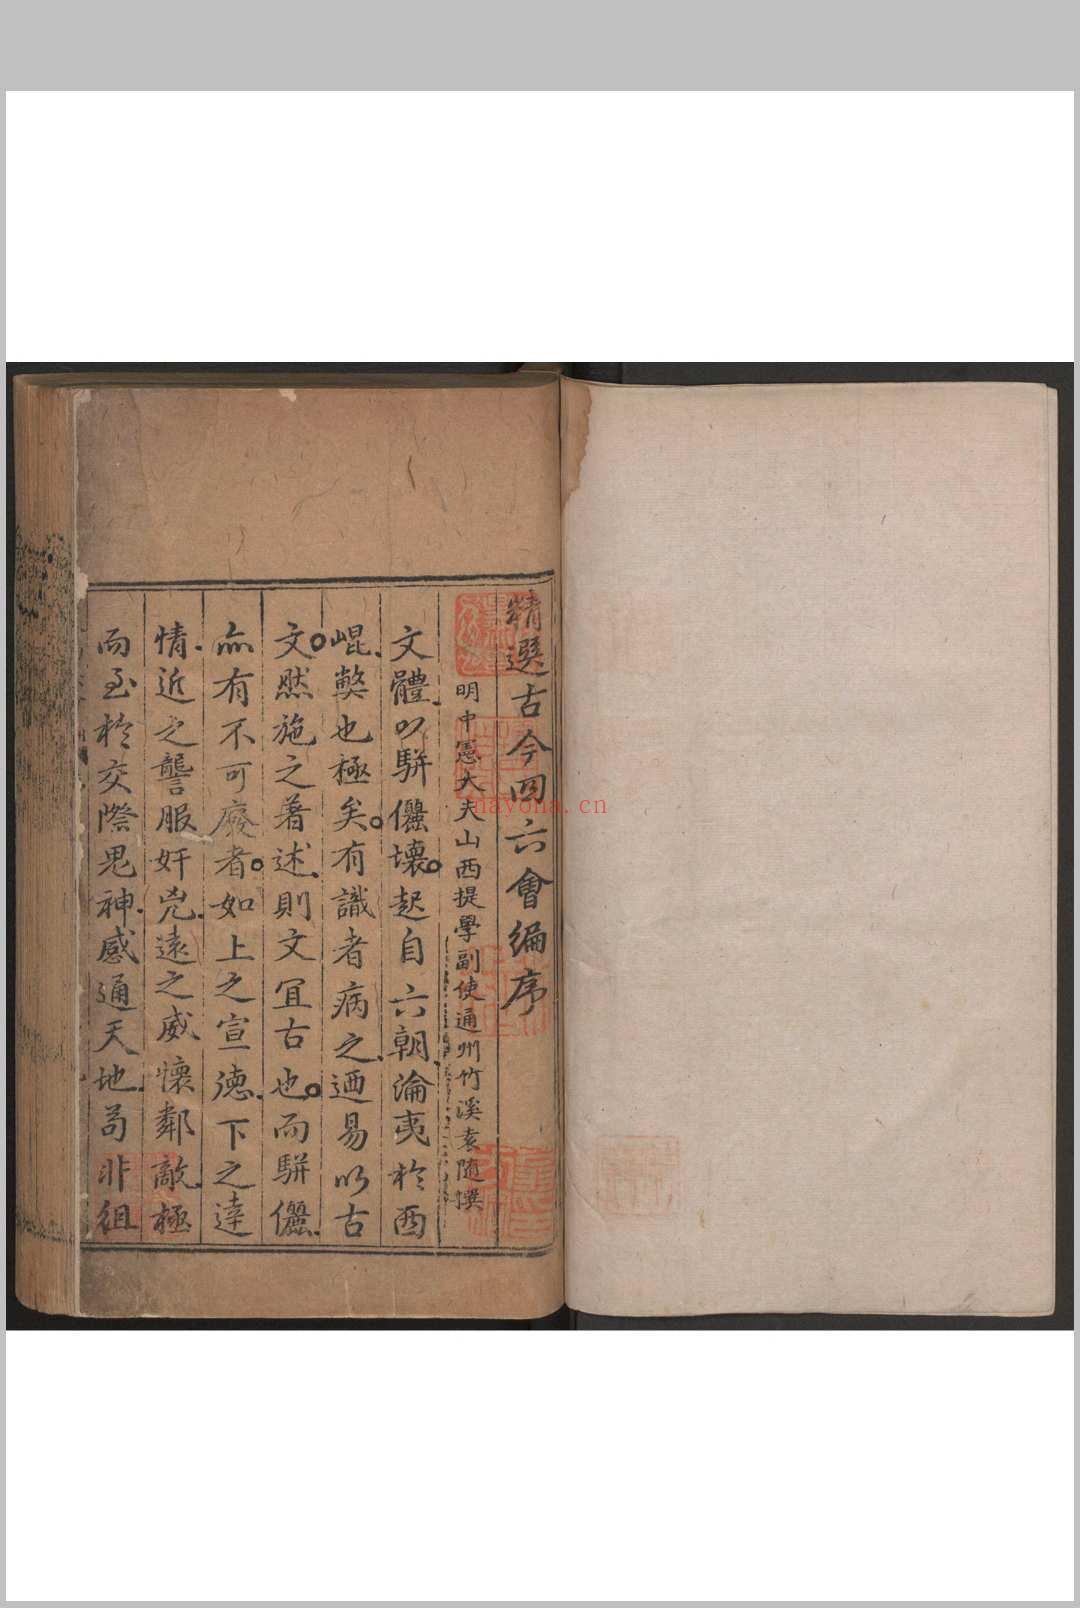 精選古今四六會編序
明中憲大夫山西提學副使通州竹溪袁隨撰
文體以駢儷壞起自六朝淪夷於西
崐獘也極矣有識者病之迺易以古
文然施之著述則文宜古也而駢儷
亦有不可廢者如上之宣德下之達
情近之讋服奸兇遠之威懷鄰敵極
而至於交際鬼神感通天地苟非徂
nayona.cn